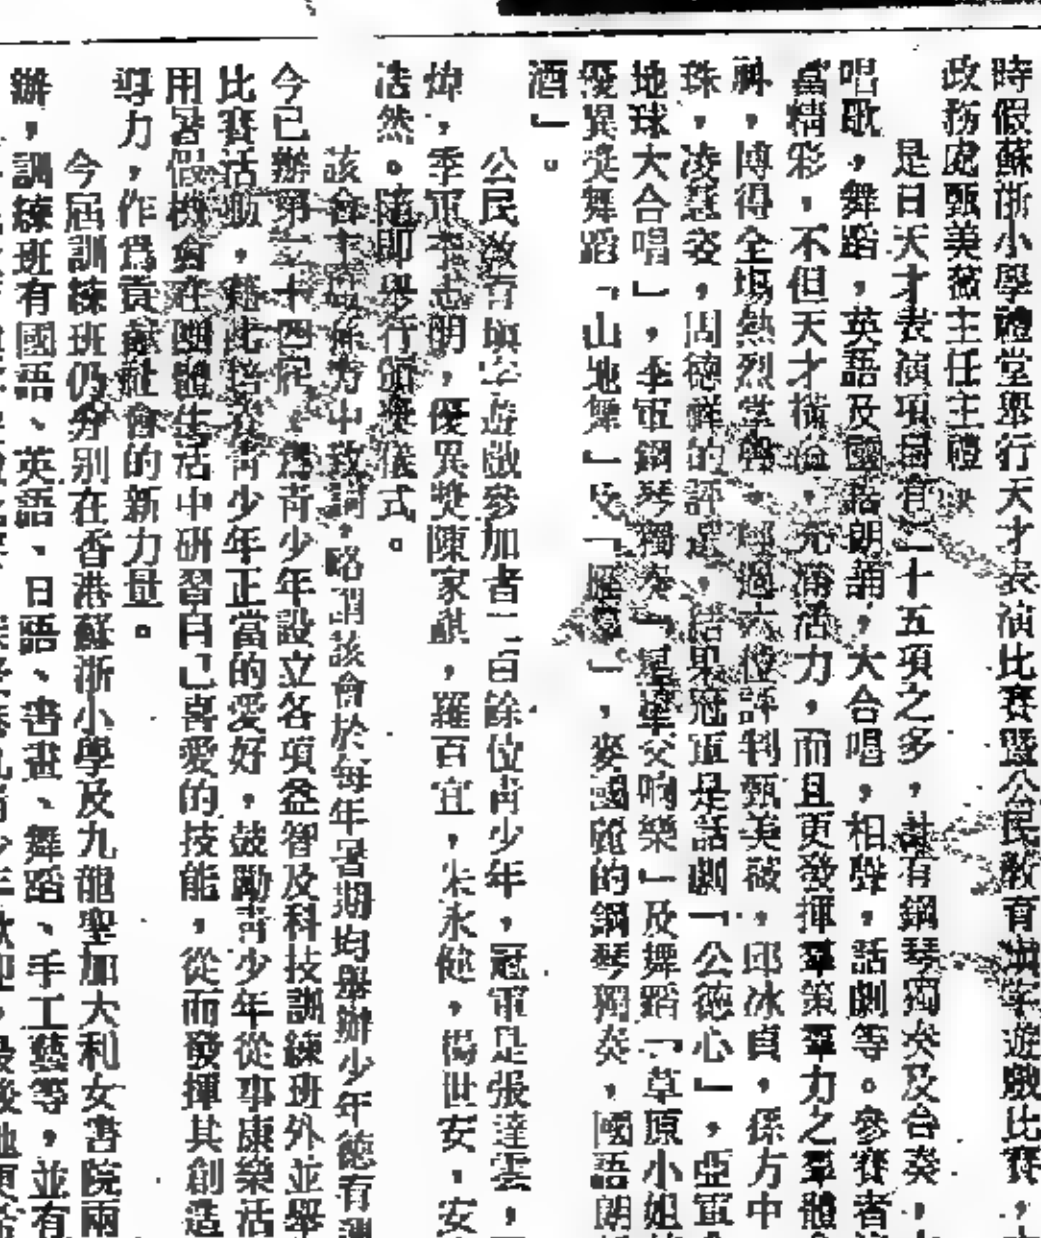 時假蘇浙小學禮堂舉行天才表演比賽暨公民教育填字遊戲比賽，
政務處甄美薇主任主禮
是日天才表演項目有二十五項之多，計有鋼琴獨奏及合奏，
唱歌，舞蹈，英語及國語朗誦，大合唱，相聲，話劇等。參賽者
當精彩，不但天才橫溢，充滿活力，而且更發揮羣策羣力之羣體
神，博得全場熱烈掌聲，經過六位評判甄美薇，邱冰貞，孫方中
珠，凌慧姿，周德鮮的評定，結果冠軍是話劇「公德心」，亞軍
地球大合唱」，季軍鋼琴獨奏「皇華交响樂」及舞蹈「草原小姐
優異獎舞蹈「山地舞」及「　」，麥國　的鋼琴獨奏，國語朗
酒」。
公民教育填字遊戲參加者二百餘位青少年，冠軍是張達雲，
煒，季軍李志明，優異獎陳家祺，羅百宜，朱永健，楊世安，安
浩然。隨即舉行頒獎儀式。
該會主席孫方中致詞，略謂該會於每年暑期均舉辦少年德育
今已辦第二十四屆，為青少年設立各項益智及科技訓練班外並舉
比賽活動，藉此培養青少年正當的愛好，鼓勵青少年從事康樂活
用暑假機會在團體生活中研習自己喜愛的技能，從而發揮其創造
導力，作爲貢獻社會的新力量。
今屆訓練班仍分別在香港蘇浙小學及九龍聖加大利女書院兩
辦，訓練班有國語、英語、日語、書畫、舞蹈、手工藝等，並有